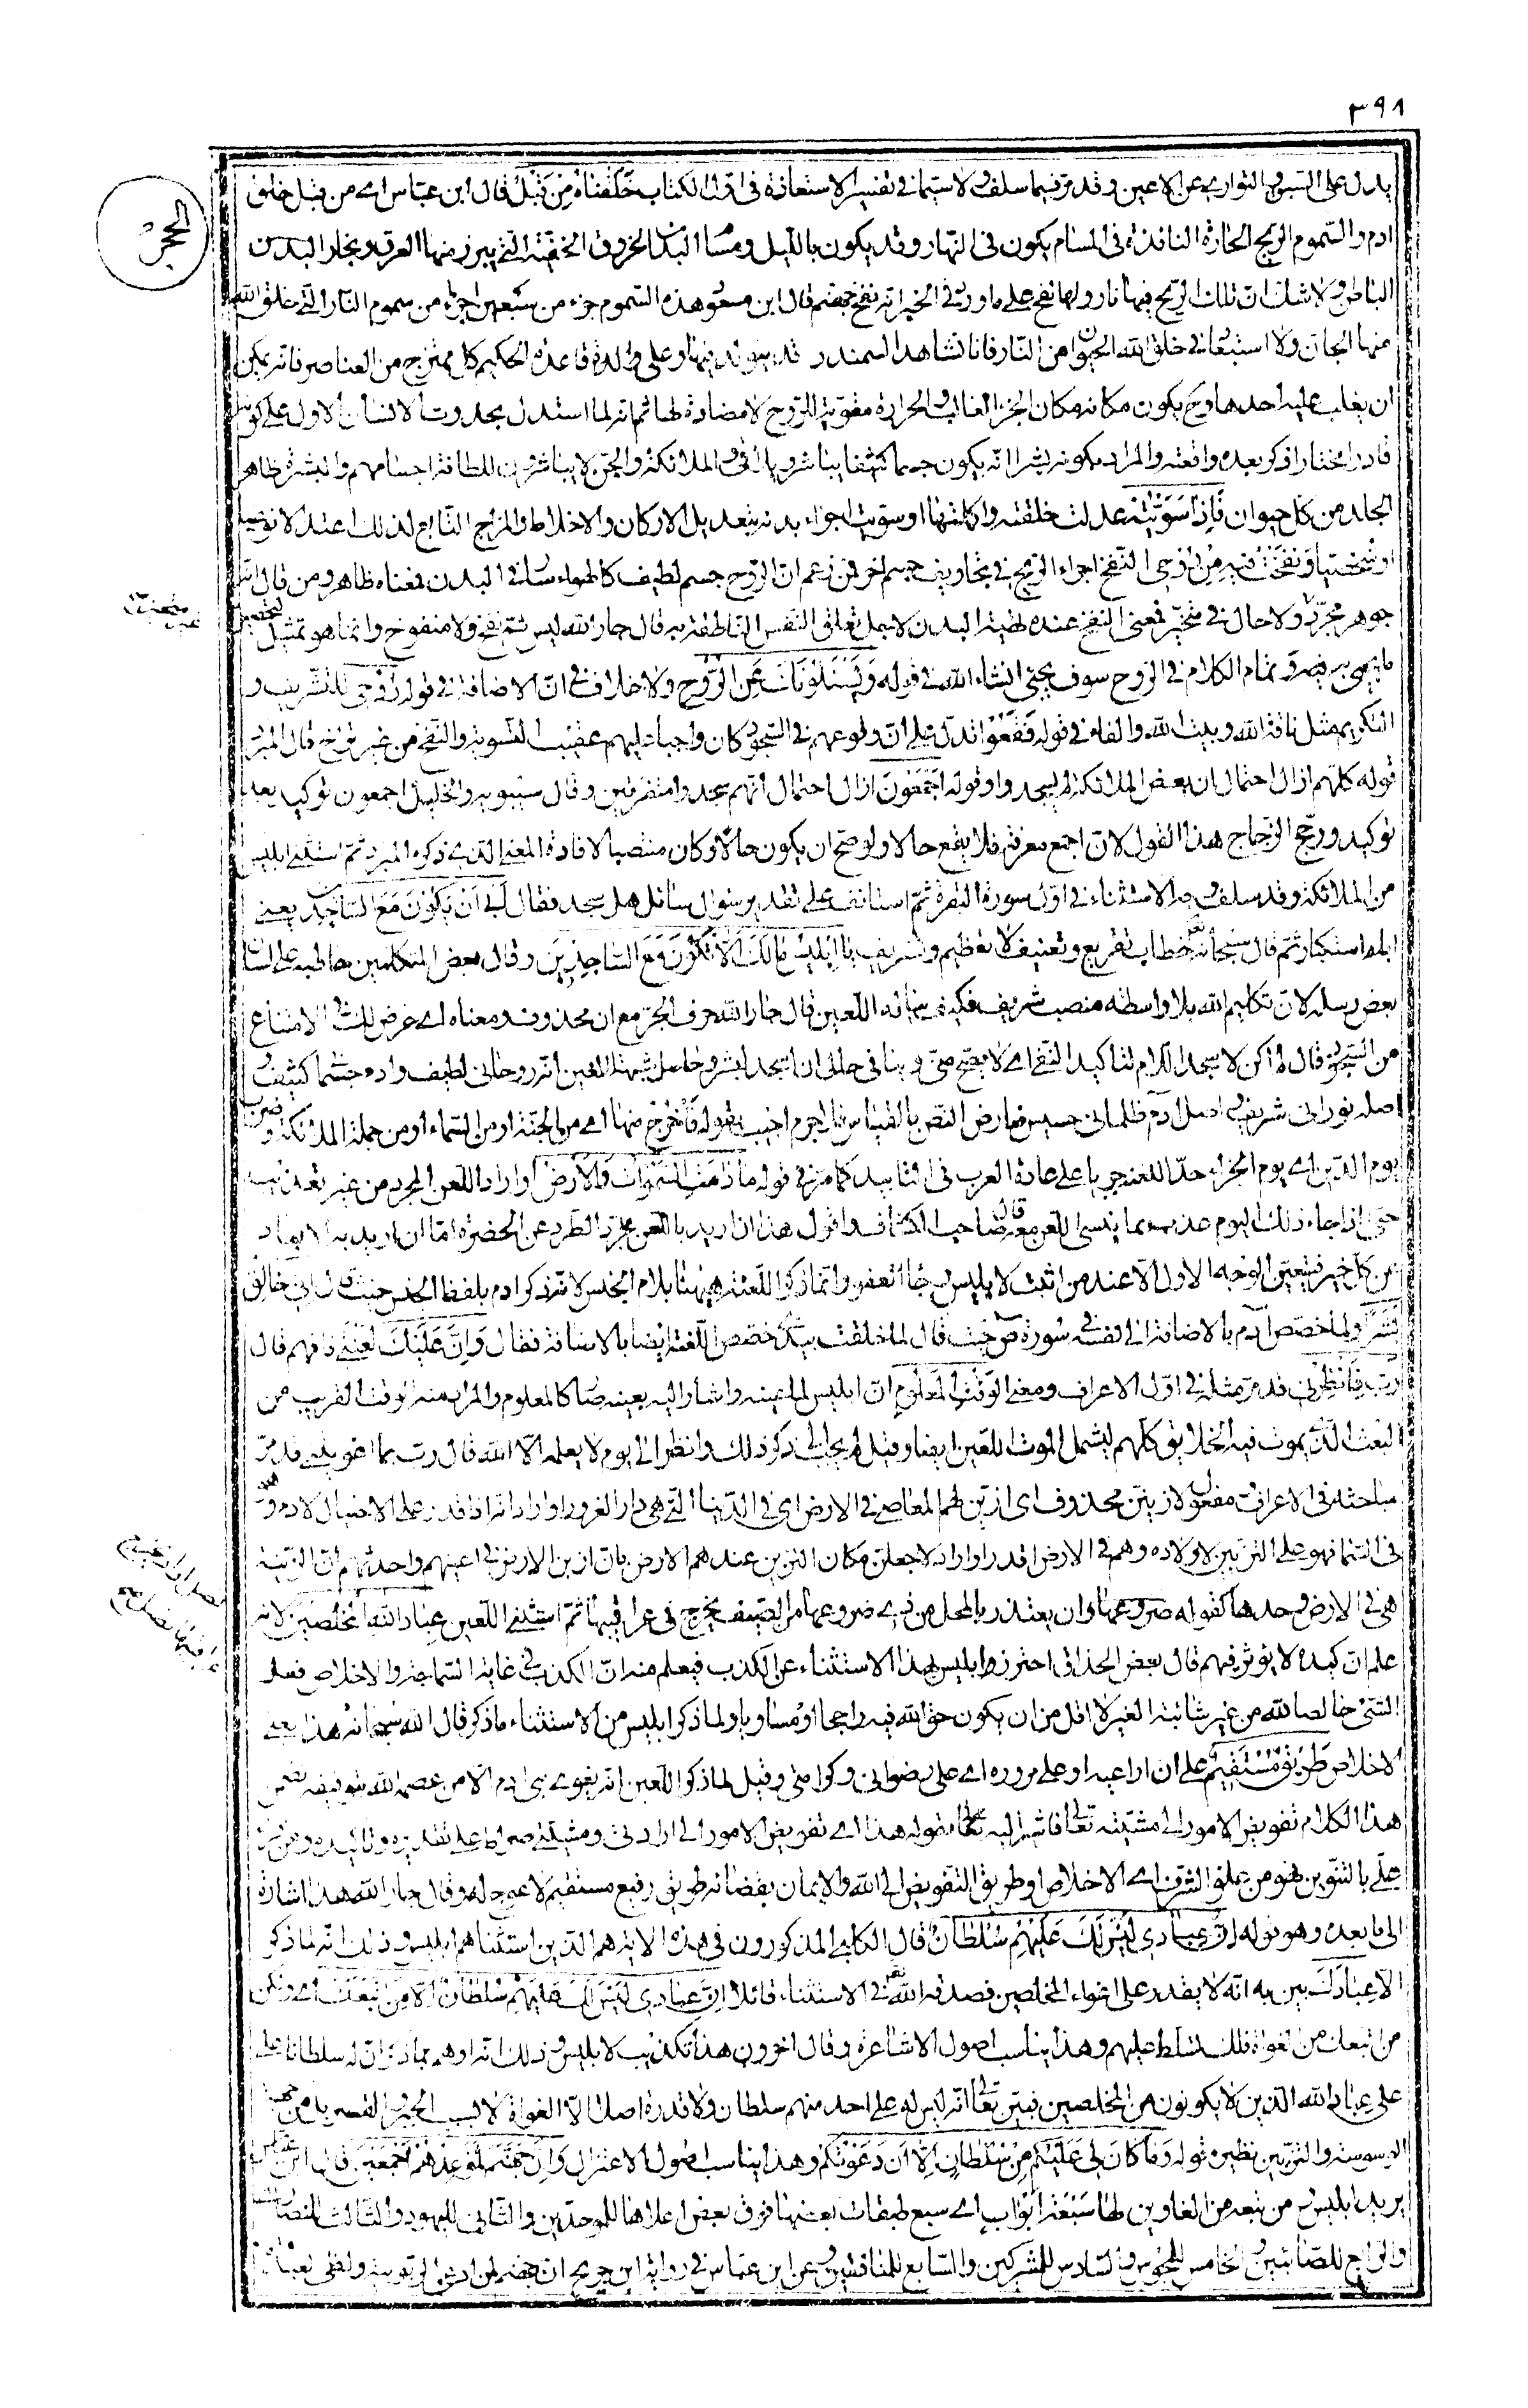 ٣٩٨
الحجر
يدل على الستر والتوارى عن الاعين وقد مر فيما سلف ولا سيما فى تفسير الاستعاذة فى اول الكتاب خَلَقْنَاهُ مِنْ قَبْلُ قال ابن عباس اى من قبل خلق
ادم والسموم الريح الحارة النافذة فى المسام يكون فى النهار وقد يكون بالليل ومسام البدن الخروق الخفية التى يبرز منها العرق وبخار البدن
الباطن ولا شك ان تلك الريح فيها نار ولها نفح على ما ورد فى الخبر انه نفح جهنم قال ابن مسعود هذه السموم جزء من سبعين اجزاء من سموم النار التى خلق الله
منها الجان ولا استبعاد فى خلق الله الحيوان من النار فانا نشاهد السمندر قد يتولد فيها وعلى قاعدة الحكيم كل ممتزج من العناصر فانه يمكن
ان يغلب عليه احدها وح يكون مكانه مكان الجزء الغالب والحرارة مقوية للروح لا مضادة لها ثم انه لما استدل بحدوث الانسان الاول على كونه
قادرا مختارا ذكر بعده واقعته والمراد بكونه بشرا انه يكون جسما كثيفا يباشر ويلاقى والملائكة والجن لا يباشرون للطافة اجسامهم والبشرة ظاهر
الجلد من كل حيوان فَاِذَا سَوَّيْتُهُ عدلت خلقته واكملتها او سويت اجزاء بدنه بتعديل الاركان والاخلاط والمزاج التابع لذلك اعتدالا نوعيا
او شخصيا وَنَفَخْتُ فِيهِ مِنْ رُوحِى النفخ اجراء الريح فى تجاويف جسم اخر فمن زعم ان الروح جسم لطيف كالهواء سار فى البدن فمعناه ظاهر ومن قال انه
جوهر مجرد ولا حال فى متحيز فمعنى النفخ عنده تهيئة البدن لاجل تعلق النفس الناطقة به قال جار الله ليس ثم نفخ ولا منفوخ وانما هو تمثيل لتحصيل
ما يحيى به فيه وتمام الكلام فى الروح سوف يجئ انشاء الله فى قوله وَيَسْئَلُونَكَ عَنِ الرُّوحِ ولا خلاف فى ان الاضافة فى قوله رُوحِى للتشريف و
التكريم مثل ناقة الله وبيت الله والفاء فى قوله فَقَعُوا تدل على ان وقوعهم فى السجود كان واجبا عليهم عقيب التسوية والنفخ من غير تراخ قال المبرد
قوله كلهم ازال احتمال ان بعض الملائكة لم يسجدوا وقوله اَجْمَعُونَ ازال احتمال انهم سجدوا متفرقين وقال سيبويه والخليل اجمعون توكيد بعد
توكيد ورجح الزجاج هذا القول لان اجمع معرفة فلا يقع حالا ولو صح ان يكون حالا وكان منتصبا لافادة المعنى الذى ذكره المبرد ثم استثنى ابليس
من الملائكة وقد سلف وجه الاستثناء فى اول سورة البقرة ثم استأنف على تقدير سؤال سائل هل سجد فقال اَبٰى اَنْ يَكُونَ مَعَ السَّاجِدِينَ يعنى
اباء استكبار ثم قال سبحانه خطاب تقريع وتعنيف لا تعظيم وتشريف يَا اِبْلِيسُ مَالَكَ اَلَّا تَكُونَ مَعَ السَّاجِدِينَ وقال بعض المتكلمين خاطبه على لسان
بعض رسله لان تكليم الله بلا واسطة منصب شريف فكيف يناله اللعين قال جار الله حرف الجر مع ان محذوف ومعناه اى غرض لك فى الامتناع
من السجود قال لم اكن لاسجد اللام لتأكيد النفى اى لا يصح منى وينافى حالى ان اسجد لبشر وحاصل شبهة اللعين انه روحانى لطيف وادم جسمانى كثيف و
اصله نورانى شريف واصل ادم ظلمانى خسيس فعارض النص بالقياس فلا جرم اجيب بقوله فَاخْرُجْ مِنْهَا اى من الجنة او من السماء او من جملة الملائكة وضرب
يوم الدين اى يوم الجزاء حدا للعنة جريا على عادة العرب فى التأبيد كما مر فى قوله مَا دَامَتِ السَّمٰوَاتُ وَالْاَرْضُ او اراد اللعن المجرد من غير تعذيب
حتى اذا جاء ذلك اليوم عذب بما ينسى اللعن معه قاله صاحب الكشاف واقول هذا ان اريد باللعن مجرد الطرد عن الحضرة اما ان اريد به الابعاد
عن كل خير فيتعين الوجه الاول الا عند من اثبت لابليس رجاء العفو وانما ذكر اللعنة ههنا بلام الجنس لانه ذكر ادم بلفظ الجنس حيث قال اِنِّى خَالِقٌ
بَشَرًا ولما خصص ادم بالاضافة الى نفسه فى سورة ص حيث قال لما خلقت بيدى خصص اللعنة ايضا بالاضافة فقال وَاِنَّ عَلَيْكَ لَعْنَتِى فافهم قال
رَبِّ فَاَنْظِرْنِى قد مر مثله فى اول الاعراف ومعنى الْوَقْتِ الْمَعْلُومِ ان ابليس لما عينه واشار اليه بعينه صار كالمعلوم والمراد منه الوقت القريب من
البعث الذى يموت فيه الخلائق كلهم ليشمل الموت اللعين ايضا وقيل لم يجب الى ذكر ذلك وانظر الى يوم لا يعلمه الا الله قال رب بما اغويتنى قد مر
مباحثه فى الاعراف ومفعول لازينن محذوف اى ازين لهم المعاصى فى الارض اى فى الدنيا التى هى دار الغرور او اراد انه اذا قدر على الاحتيال لادم وهو
فى السماء فهو على التزيين لاولاده وهم فى الارض اقدر او اراد لاجعلن مكان التزيين عندهم الارض بان ازين الارض فى اعينهم واحدثهم ان الزينة
هى فى الارض وحدها كقوله وان يعتذر بالمحل من ذى ضروعها من الضيف يجرح فى عراقيبها ثم استثنى اللعين عباد الله المخلصين لانه
علم ان كيده لا يؤثر فيهم قال بعض الحذاق احترز ابليس بهذا الاستثناء عن الكذب فيعلم منه ان الكذب فى غاية السماجة والاخلاص فعل
الشئ خالصا لله من غير شائبة الغير لا اقل من ان يكون حق الله فيه راجحا او مساويا ولما ذكر ابليس من الاستثناء ما ذكر قال الله سبحانه هذا يعنى
الاخلاص طَرِيقٌ مُسْتَقِيمٌ على ان اراعيه او على مروره اى على رضوانى وكرامتى وقيل لما ذكر اللعين انه يغوى بنى ادم الا من عصمه الله بتوفيقه تضمن
هذا الكلام تفويض الامور الى مشيئته تعالى فاشير اليه بقوله هذا اى تفويض الامور الى ارادتى ومشيئتى صراط على تقديره وتأكيده ومن قرأ
عَلِىٌّ بالتنوين فهو من علو الشرف اى الاخلاص او طريق التفويض الى الله والايمان بقضائه طريق رفيع مستقيم لا عوج له وقال جار الله هذا اشارة
الى ما بعده وهو قوله اِنَّ عِبَادِى لَيْسَ لَكَ عَلَيْهِمْ سُلْطَانٌ قال الكلبى المذكورون فى هذه الاية هم الذين استثناهم ابليس وذلك انه لما ذكر
الا عِبَادَكَ بين به انه لا يقدر على اغواء المخلصين فصدقه الله فى الاستثناء قائلا اِنَّ عِبَادِى لَيْسَ لَكَ عَلَيْهِمْ سُلْطَانٌ اِلَّا مَنِ اتَّبَعَكَ اى ولكن
من اتبعك من الغواة فلك تسلط عليهم وهذا يناسب اصول الاشاعرة وقال اخرون هذا تكذيب لابليس وذلك انه اوهم بما ذكر ان له سلطانا
على عباد الله الذين لا يكونون من المخلصين فبين تعالى انه ليس له على احد منهم سلطان ولا قدرة اصلا الا الغواة لا بسبب الجبر والقسر بل من جهة
الوسوسة والتزيين نظيره قوله وَمَا كَانَ لِى عَلَيْكُمْ مِنْ سُلْطَانٍ اِلَّا اَنْ دَعَوْتُكُمْ وهذا يناسب اصول الاعتزال وَاِنَّ جَهَنَّمَ لَمَوْعِدُهُمْ اَجْمَعِينَ قال ابن عباس
يريد ابليس ومن تبعه من الغاوين لَهَا سَبْعَةُ اَبْوَابٍ اى سبع طبقات بعضها فوق بعض اعلاها للموحدين والثانى لليهود والثالث للنصارى
والرابع للصابئين والخامس للمجوس والسادس للمشركين والسابع للمنافقين وعن ابن عباس فى رواية ابن جريج ان جهنم لمن ادعى الربوبية ولظى لعبدة